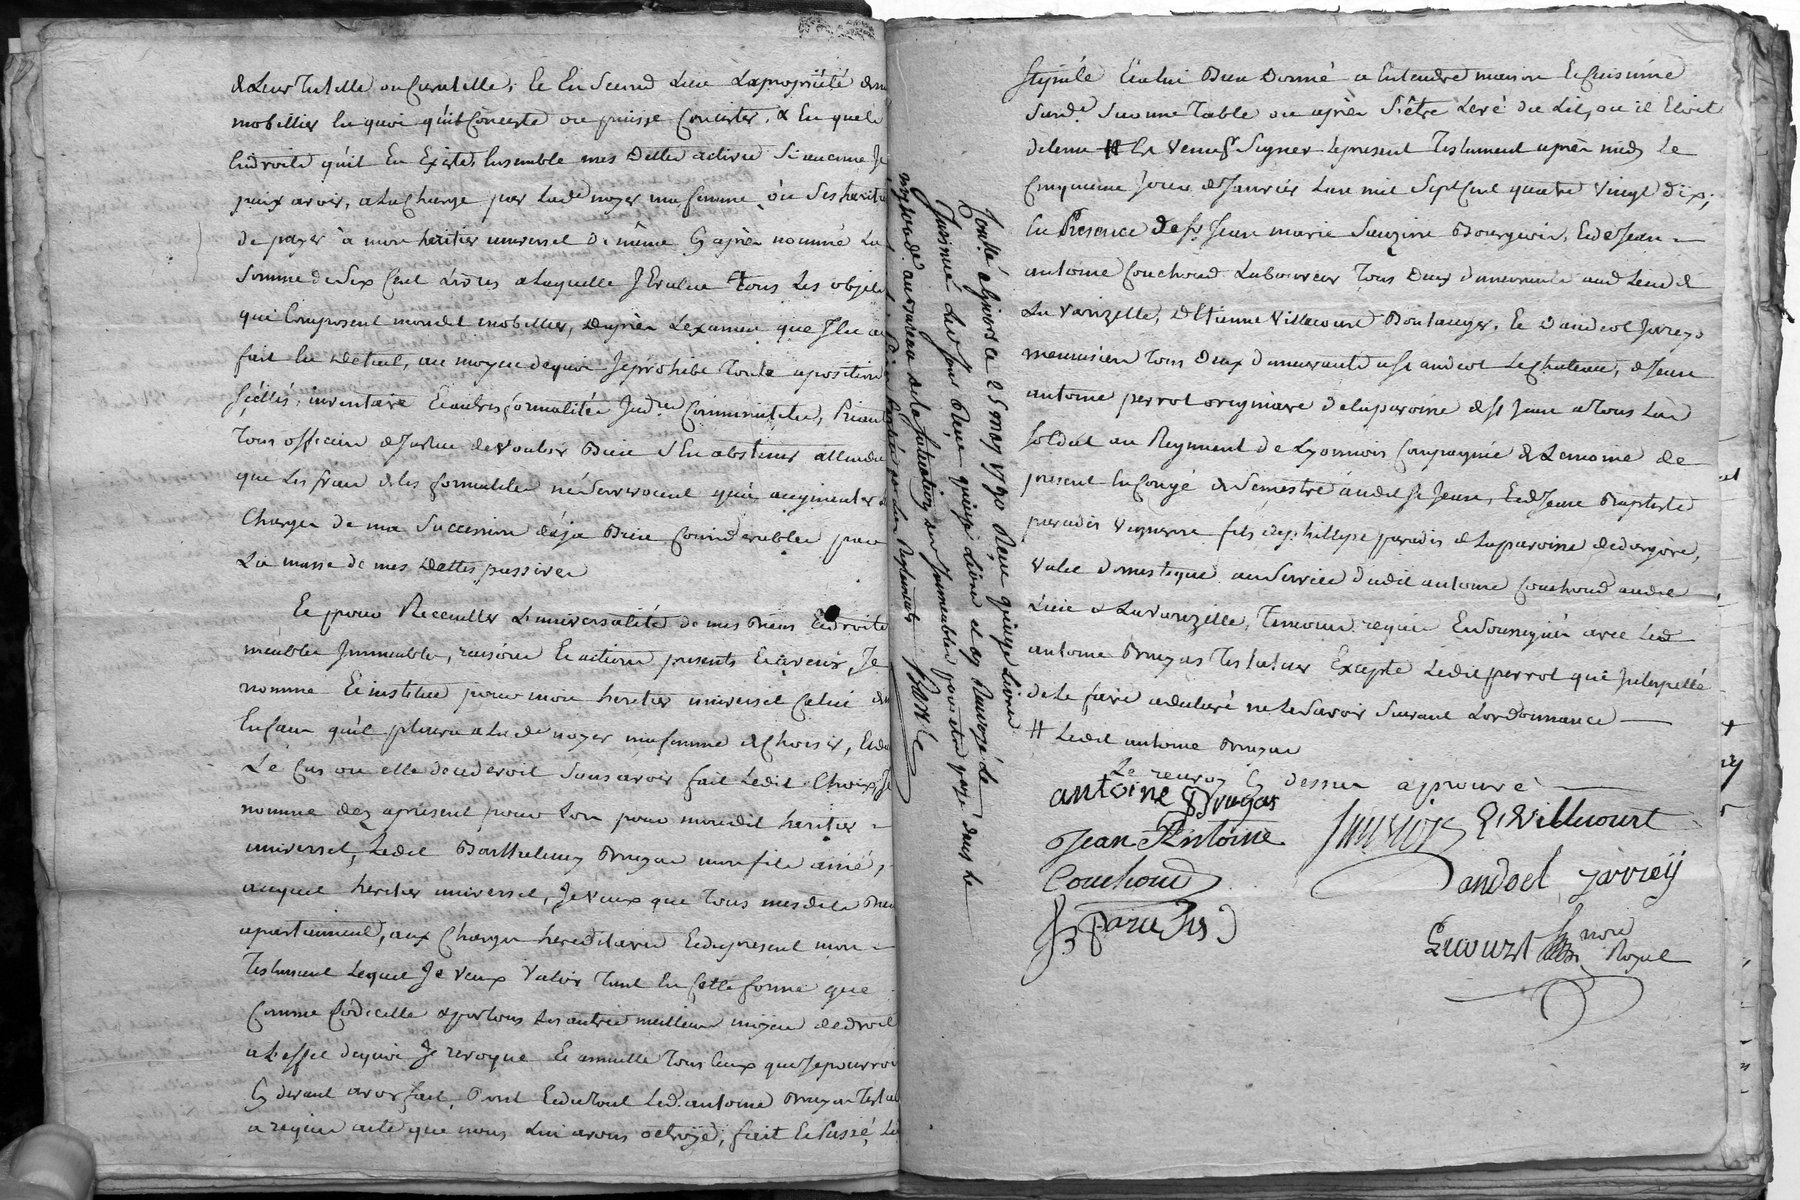 & Leur Tutelle ou Curatelle, Et En Second Lieu La propriété de mon
mobillier En quoi qu'il Conciste ou puisse Concister, & En quels
Endroits qu'il En Existe, Ensemble mes Dettes actives Si aucune Je
puis avoir, a La Charge par Lad. noyer ma femme ou Ses heritiers
de payer à mon heritier universel De même Cy après nommé La
Somme de Six Cent Livres a Laquelle J'Evalue Tous Les objets
qui Composent mondit mobillier, D'après L'examen que J'En ai
fait En Détail, au moyen de quoi Je prohibe Toute aposition de
Scéllés, inventaire Et autres formalités Judres Communiter, Priant
Tous officiers de Justice de vouloir Bien S'En abstenir attendu
que Les frais de les formalités ne Serviroient qu'à augmenter Les
Charges de ma Succession déja Bien Considerables par
La masse de mes Dettes passives
Et pour Recceuiller L'universalité de mes Biens Et droits
meubles Immeubles, raisons Et actions presents Et avenir, Je
nomme Et institue pour mon heritier universel Celui de mes
Enfans qu'il plaira a Lade noyer ma femme de Choisir, Et dans
Le Cas ou elle decederoit Sans avoir fait Ledit Choix Je
nomme dez apresent pour Lors pour mondit heritier
universel, Ledit Barthelemy Brugas mon fils ainé,
auquel heritier universel, Je veux que Tous mesdits Biens
apartiennent, aux Charges hereditaires Et du present mon
Testament Lequel Je veux valoir Tant En Cette forme que
Comme Codicille & par tous Les autres meilleurs moyens de droit
a L'effet de quoi Je revoque Et annulle Tous Ceux que Je pourrois
Cy devant avoir fait, Dont Et du tout Led. antoine Brugas Testateur
a requis acte que nous Lui avons octroyé, fait Et Passé, Lu
Controllé a Givors ce 25 may 1790 Reçu quinze Livres
Insinué Led. Jour Reçu quinze Livres et Renvoyé Le
moyen de au bureau de La Situation des Immeubles pour etre payé dans Le
stipulé Et a lui Bien Donné a Entendre maison Et Cuisine
Sur une Table ou après S'être Levé du Lit, ou il Etoit
detenu # Est venu Signer Le present Testament après midy Le
Cinquieme Jour de Janvier L'an mil Sept Cent quatre vingt dix,
En Présence de Sr Jean marie Bourgeois, Et de Jean
antoine Couchoud Laboureur Tous Deux demeurants aud Lieu de
La varizelle, d'Etienne Villecourt Boulanger, Et D'andeol Jarrey
menuisier Tous Deux demeurants a St andeol Le Chateau, de Jean
antoine perrot originaire de La paroisse de St Jean a Tous Las
Soldat au Regiment de Lyonnois Compagnie de Lemoine de
present En Congé de Semestre audit St Jean, Et de Jean Baptiste
paradis vigneron fils de phillipe paradis de La paroisse de dargoire,
valet Domestique au Service dudit antoine Couchoud audit
Lieu de La varizelle, Temoins requis Et Soussignés avec Led.
antoine Brugas Testateur Excepté Ledit perrot qui Interpellé
de Le faire a déclaré ne Le Savoir Suivant L'ordonnance
# Ledit antoine Brugas
Le renvoy Cy dessus aprouvé
antoine Brugas
E. Villecourt
Jean Antoine
Couchoud
andoel jarreÿ
JB Paradis
Lecourt
nore Royal